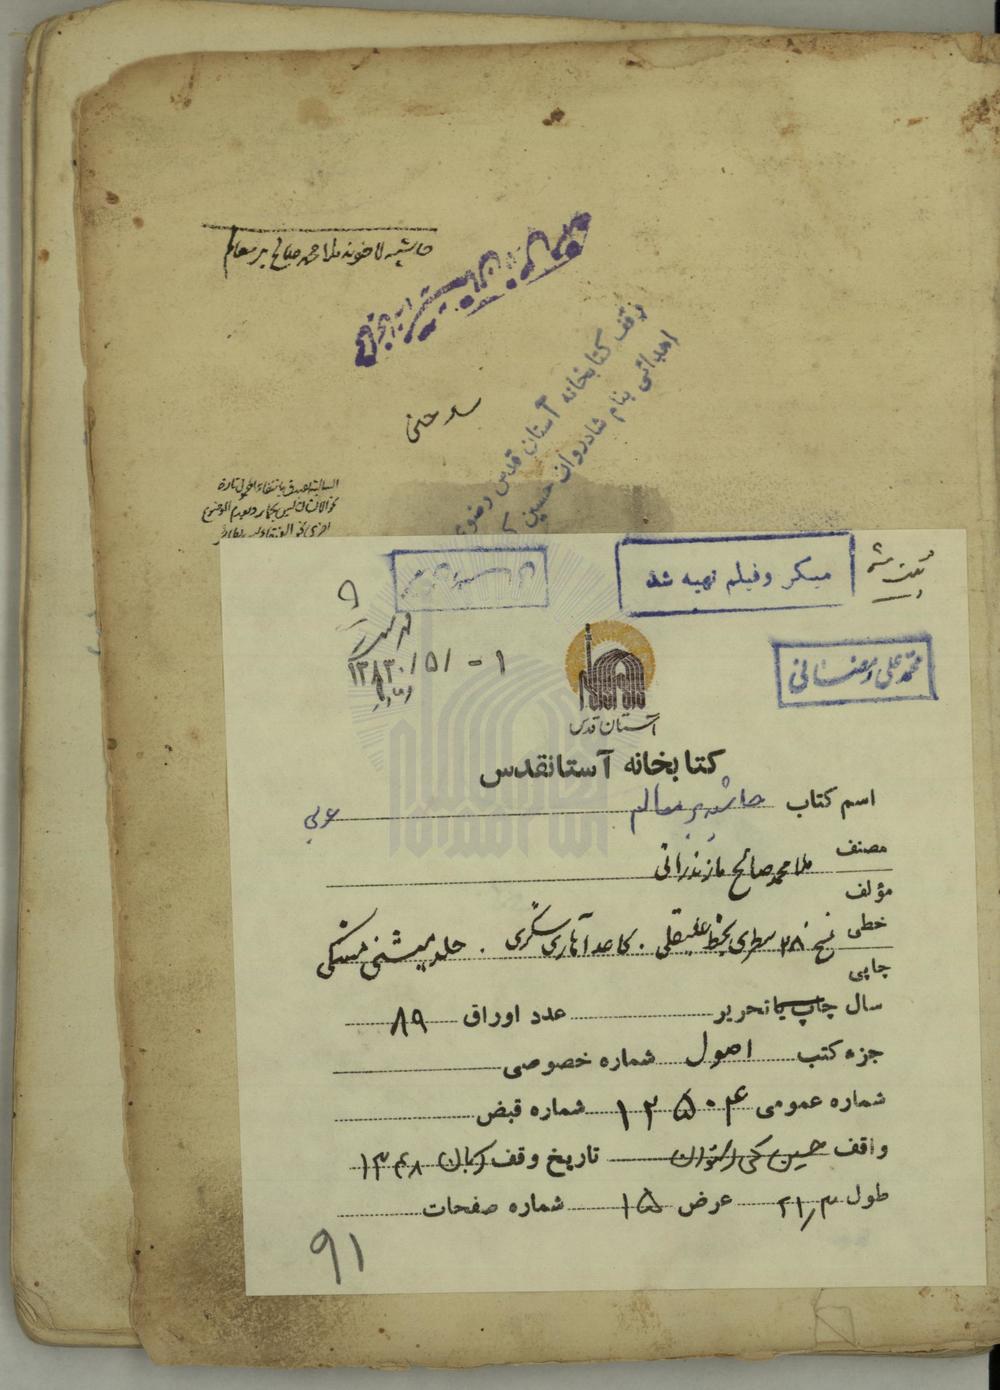 حاشیه لاخوند ملا محمد صالح بر معالم
وقف کتابخانه آستان قدس رضوی
اهدائی بنام شادروان حسین
السالبة تصدق بانتفاء المحمول تارة
میکروفیلم تهیه شد
ثبت شد
محمد علی رمضانی
۱۳۸۳۰/۵/-۱
آستان قدس
کتابخانه آستانقدس
اسم کتاب حاشیه بر معالم عربی
مصنف ملا محمد صالح مازندرانی
مؤلف
خطی نسخ ۲۸ سطری بخط علیقلی . کاغذ آهاری شکری . جلد میشنی مشکی
چاپی
سال چاپ یا تحریر عدد اوراق ۸۹
جزء کتب اصول شماره خصوصی
شماره عمومی ۱۲۵۰۴ شماره قبض
واقف حسین کی استوان تاریخ وقف آبان ۱۳۴۸
طول ۲۱٫۳ عرض ۱۵ شماره صفحات
۹۱